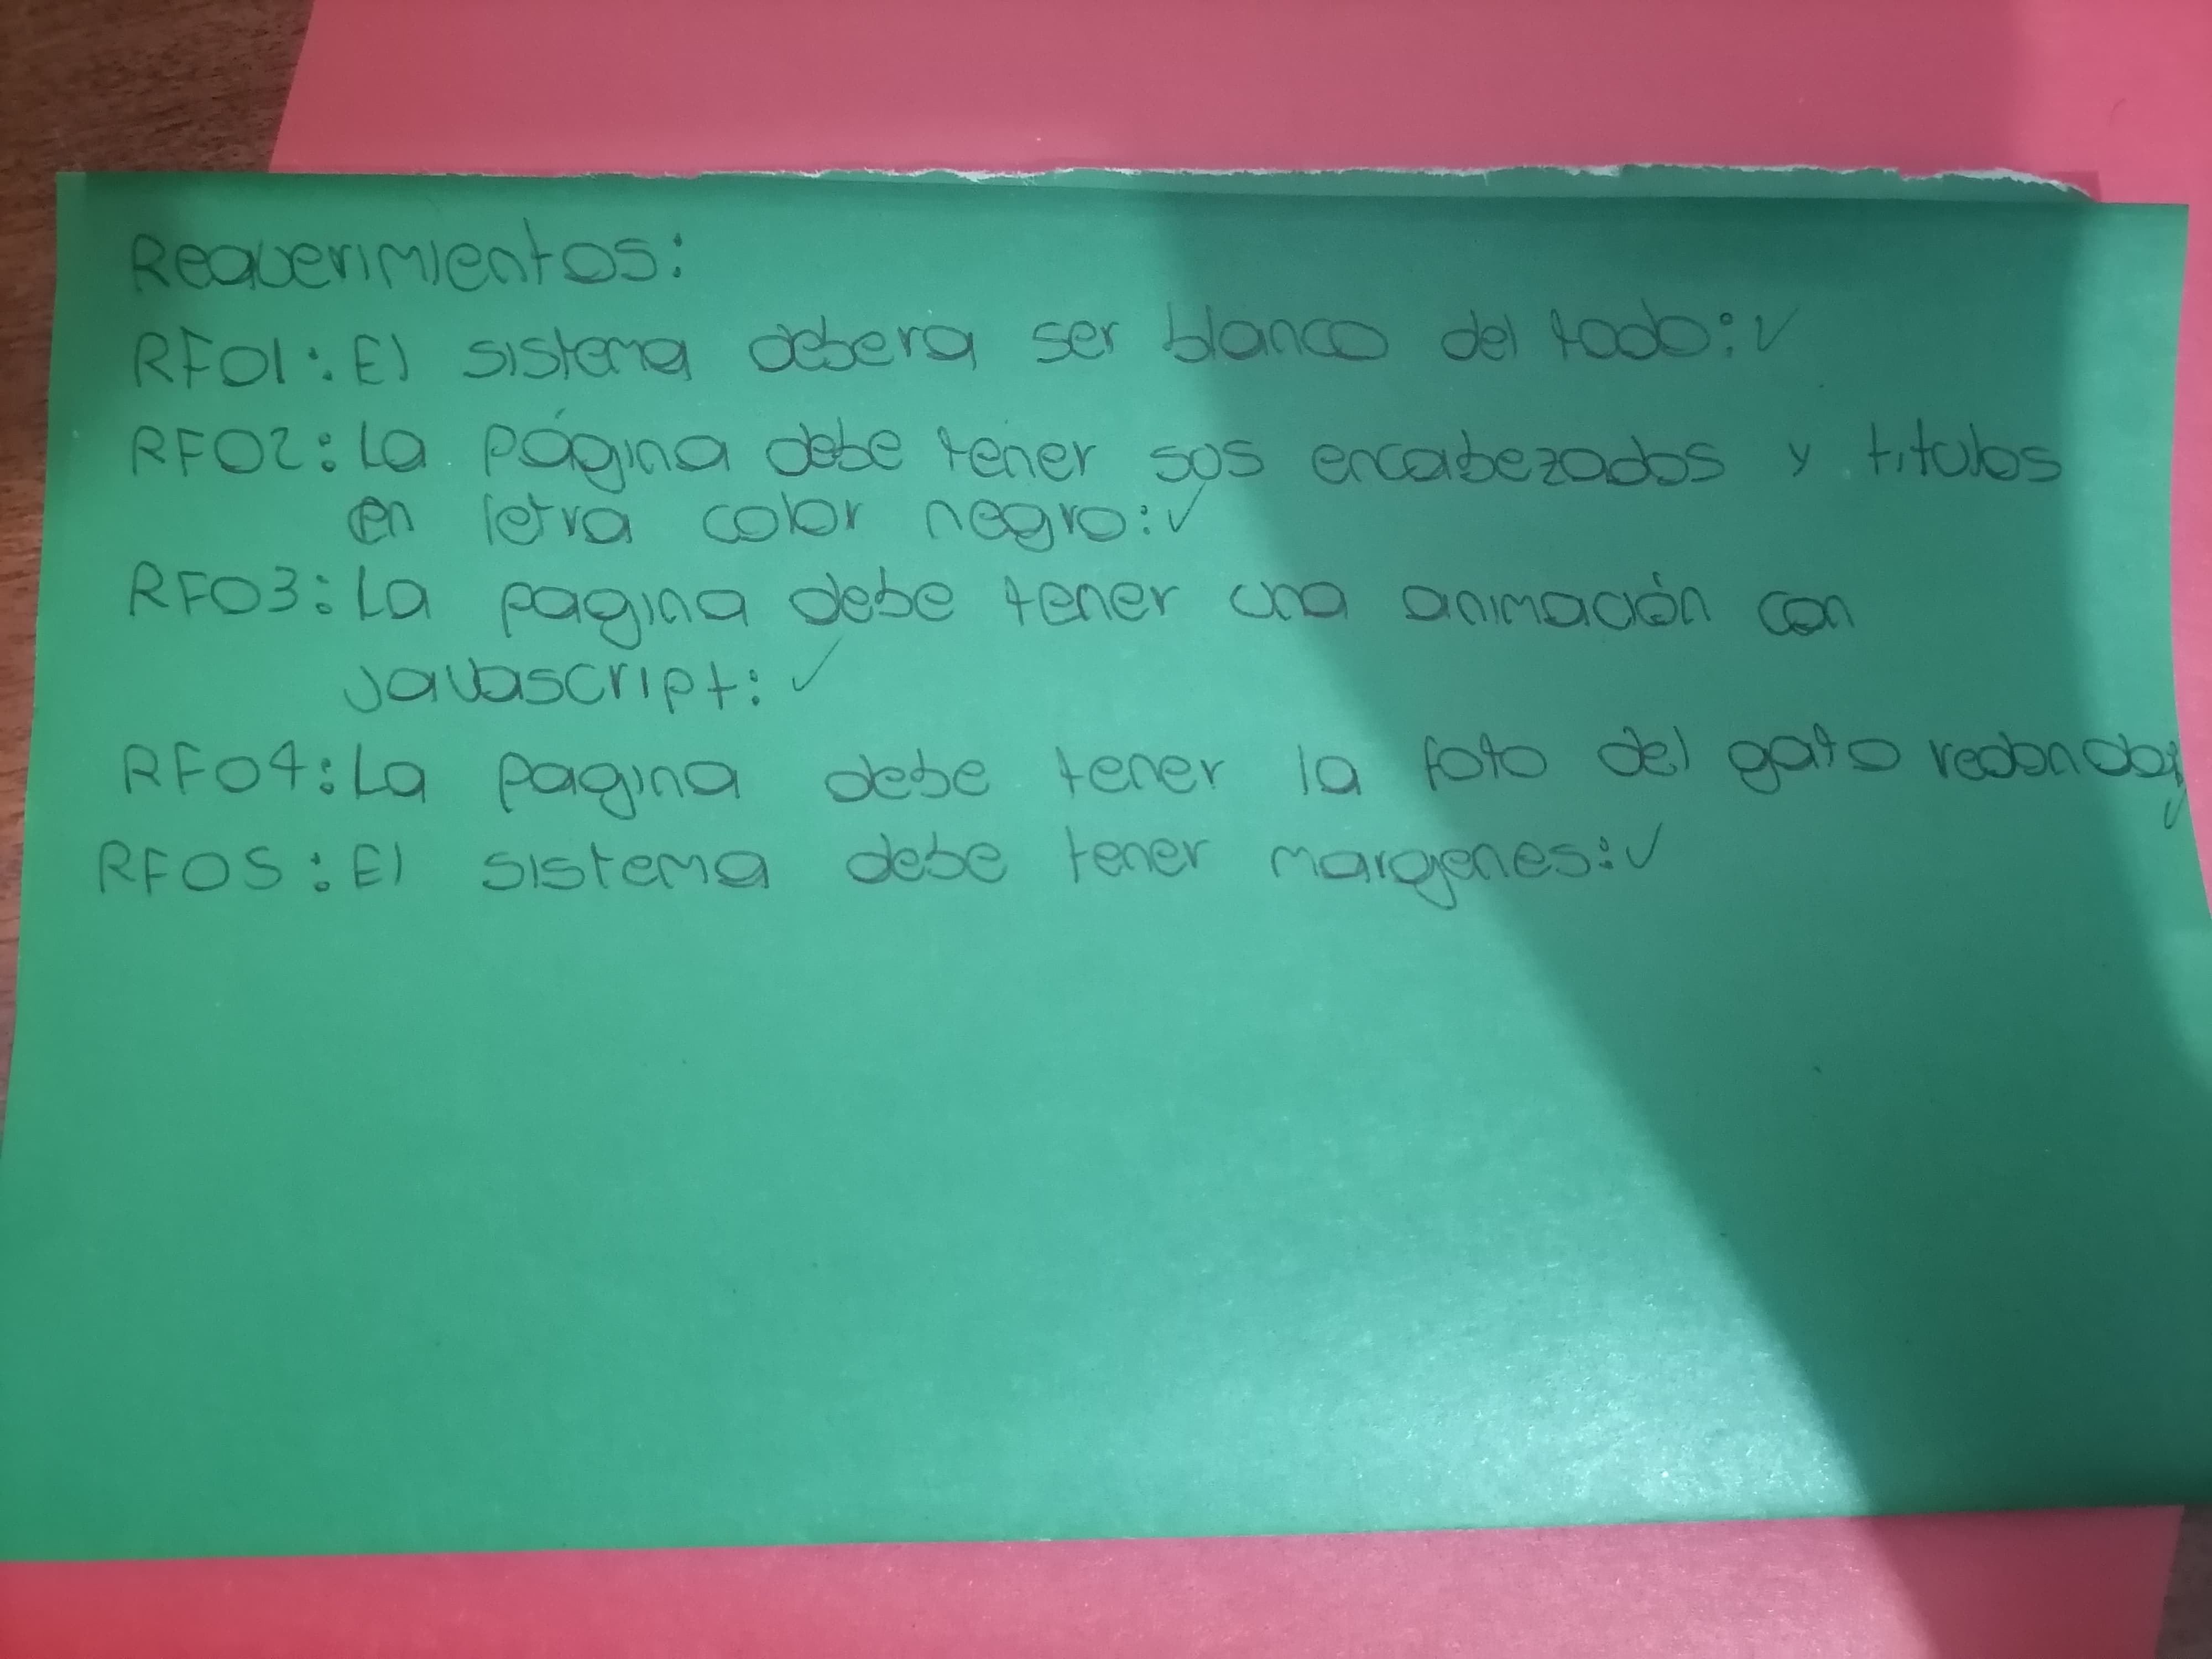 Requerimientos:
RF01: El sistema debera ser blanco del todo: ✓
RF02: La página debe tener sus encabezados y titulos
en letra color negro: ✓
RF03: La pagina debe tener una animación con
Javascript: ✓
RF04: La pagina debe tener la foto del gato redondo: ✓
RF05: El sistema debe tener margenes: ✓